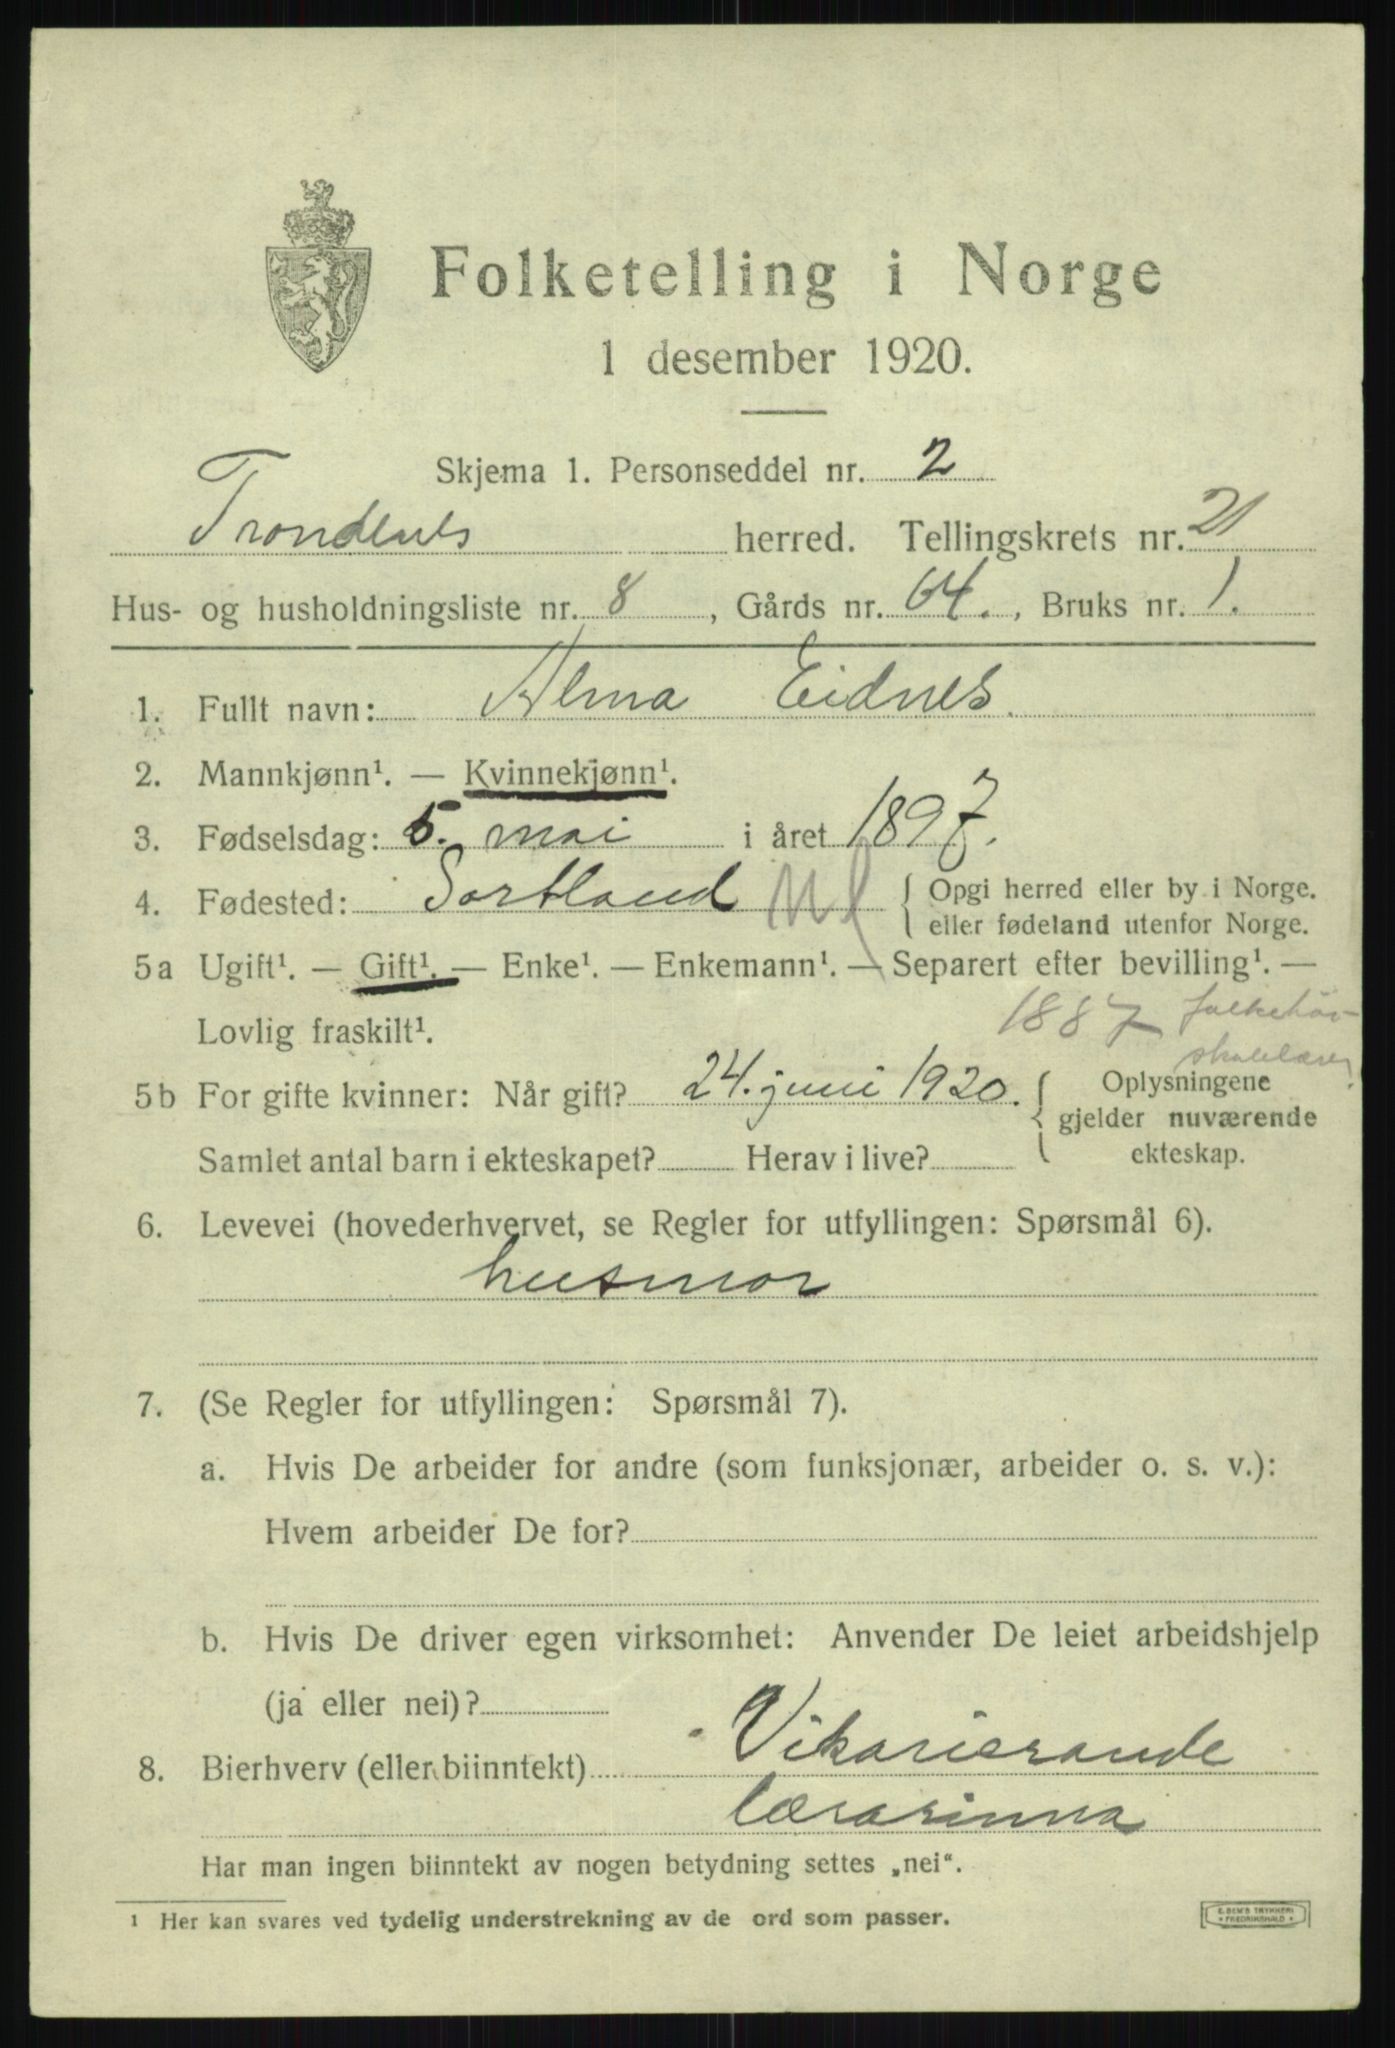 Folketelling i Norge
1 desember 1920.
Skjema 1. Personseddel nr. 2
Trondenes herred. Tellingskrets nr. 21
Hus- og husholdningsliste nr. 8, Gårds nr. 64., Bruks nr. 1.
1. Fullt navn: Alma Eidnes.
2. Mannkjønn¹. — Kvinnekjønn¹.
3. Fødselsdag: 5. mai i året 1897.
4. Fødested: Sortland Nl { Opgi herred eller by i Norge.
eller fødeland utenfor Norge.
5a Ugift¹. — Gift¹. — Enke¹. — Enkemann¹. — Separert efter bevilling¹. —
Lovlig fraskilt¹. 1887 folkehøi-
skolelærer
5b For gifte kvinner: Når gift? 24. juni 1920. { Oplysningene
gjelder nuværende
Samlet antal barn i ekteskapet? Herav i live? ekteskap.
6. Levevei (hovederhvervet, se Regler for utfyllingen: Spørsmål 6).
husmor
7. (Se Regler for utfyllingen: Spørsmål 7).
a. Hvis De arbeider for andre (som funksjonær, arbeider o. s. v.):
Hvem arbeider De for?
b. Hvis De driver egen virksomhet: Anvender De leiet arbeidshjelp
(ja eller nei)?
8. Bierhverv (eller biinntekt) Vikarierande
lærarinna
Har man ingen biinntekt av nogen betydning settes „nei“.
¹ Her kan svares ved tydelig understrekning av de ord som passer.
E. SEM'S TRYKKERI
• FREDRIKSHALD •